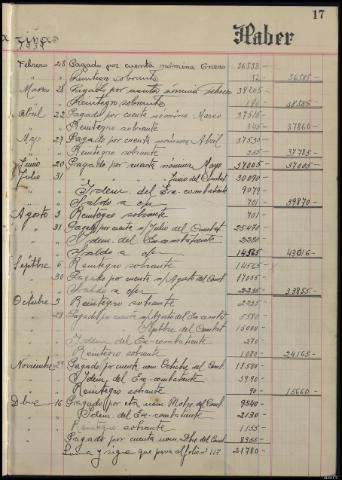 17
Haber
Febrero 28 Pagado por cuenta nómina Enero 36533
" " Reintegro sobrante 52 36585
Marzo 28 Pagado por cuenta nómina Febrero 38205
" " Reintegro sobrante 180 38385
Abril 22 Pagado por cuenta nómina Marzo 37515
" " Reintegro sobrante 345 37860
Mayo 27 Pagado por cuenta nómina Abril 37530
" " Reintegro sobrante 255 37785
Junio 20 Pagado por cuenta nómina Mayo 37005 37005
Julio 31 " " " Junio del Combat 30090
" " Idem del Ex-combatiente 9079
" " Saldo a c/n 701 39870
Agosto 3 Reintegro sobrante 701
" 31 Pagado por cuenta n/Julio del Combat 25470
" " Idem del Excombatiente 2280
" " Saldo a c/n 14565 43016
Septbre 6 Reintegro sobrante 14565
" 30 Pagado por cuenta n/Agosto del Comt 17055
" " Saldo a c/n 2235 33855
Octubre 3 Reintegro sobrante 2235
" 28 Pagado por cuenta n/Agosto del Ex-combt 5550
" " Septbre del Combat 15000
" " Idem del Ex-combatiente 270
" " Reintegro sobrante 1080 24165
Noviembre Pagado por cuenta nom Octubre del Comt 11580
" " Idem del Ex-combatiente 3990
" " Reintegro sobrante 90 15660
Dbre 16 Pagado por cta nóm Nobre del Comt 9500
" " Idem del Ex-combatiente 2190
" " Reintegro sobrante 1155
" " Pagado por cuenta nom Dbre del Comt 8955
" " Suma y sigue que pasa al folio nº 117 21780